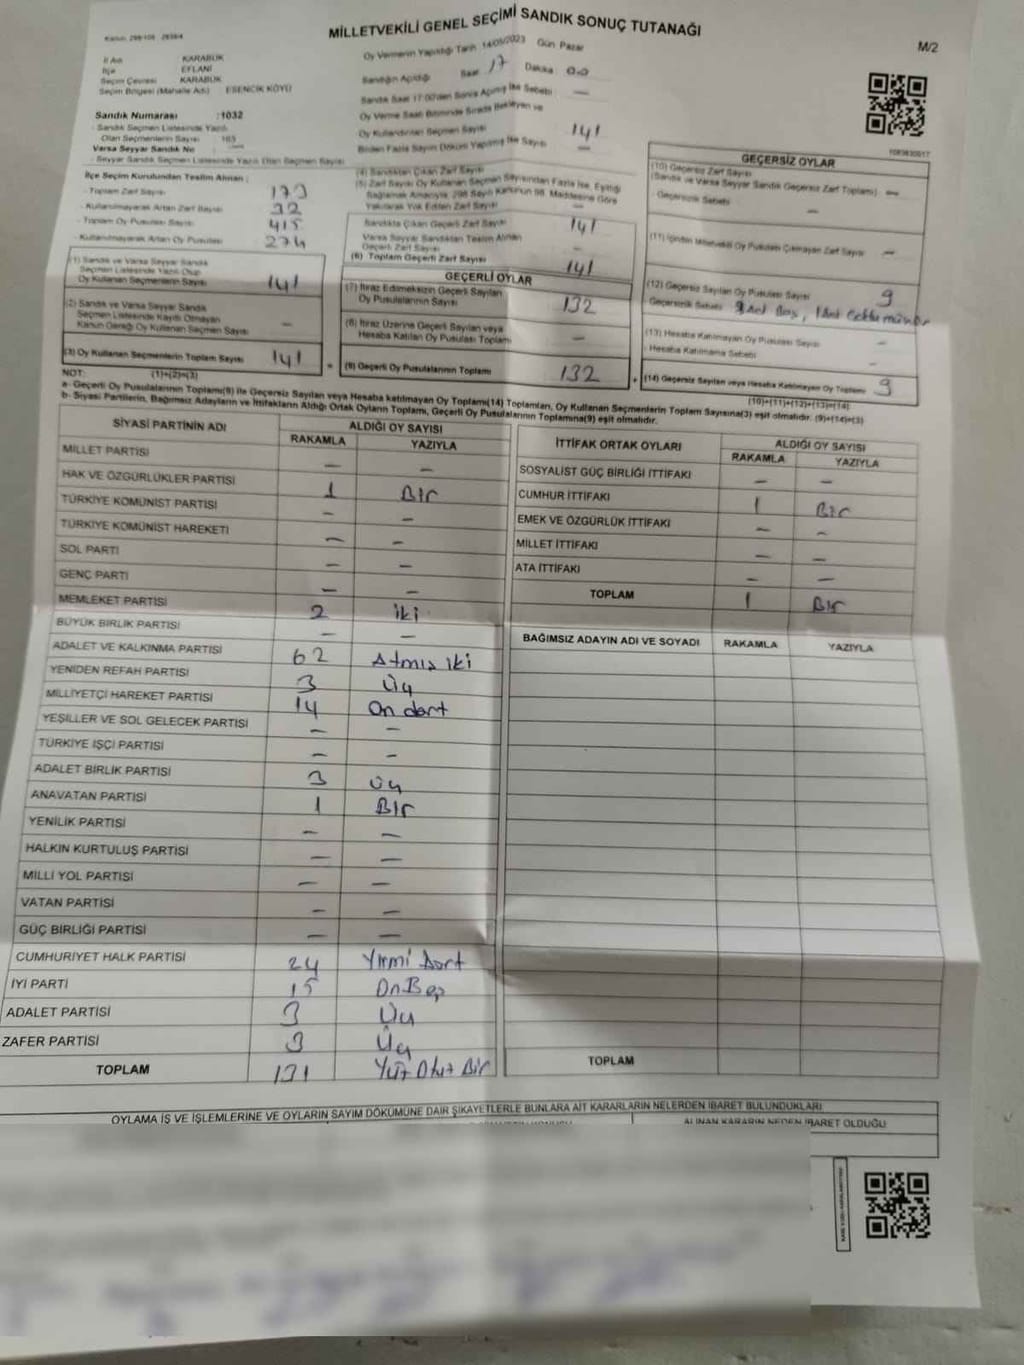 MİLLETVEKİLİ GENEL SEÇİMİ SANDIK SONUÇ TUTANAĞI
M/2
İl Adı KARABÜK
İlçe EFLANİ
Seçim Çevresi KARABÜK
Seçim Bölgesi (Mahalle Adı) ESENCİK KÖYÜ
Sandık Numarası :1032
Sandık Seçmen Listesinde Yazılı
Olan Seçmenlerin Sayısı 165
Varsa Seyyar Sandık No
- Seyyar Sandık Seçmen Listesinde Yazılı Olan Seçmen Sayısı
Oy Vermenin Yapıldığı Tarih 14/05/2023 Gün Pazar
Sandığın Açıldığı Saat 17 Dakika 00
Sandık Saat 17:00'den Sonra Açılmış İse Sebebi —
Oy Verme Saati Bitiminde Sırada Bekleyen ve
Oy Kullandırılan Seçmen Sayısı 141
Birden Fazla Sayım Döküm Yapılmış İse Sayısı —
İlçe Seçim Kurulundan Teslim Alınan ;
- Toplam Zarf Sayısı 173
- Kullanılmayarak Artan Zarf Sayısı 32
- Toplam Oy Pusulası Sayısı 415
- Kullanılmayarak Artan Oy Pusulası 274
(1) Sandık ve Varsa Seyyar Sandık
Seçmen Listesinde Yazılı Olup
Oy Kullanan Seçmenlerin Sayısı 141
(2) Sandık ve Varsa Seyyar Sandık
Seçmen Listesinde Kayıtlı Olmayan
Kanun Gereği Oy Kullanan Seçmen Sayısı —
(3) Oy Kullanan Seçmenlerin Toplam Sayısı 141
(1)+(2)=(3)
(4) Sandıktan Çıkan Zarf Sayısı
(5) Zarf Sayısı Oy Kullanan Seçmen Sayısından Fazla İse, Eşitliği
Sağlamak Amacıyla, 298 Sayılı Kanunun 98. Maddesine Göre
Yakılarak Yok Edilen Zarf Sayısı —
Sandıkta Çıkan Geçerli Zarf Sayısı 141
Varsa Seyyar Sandıktan Teslim Alınan
Geçerli Zarf Sayısı —
(6) Toplam Geçerli Zarf Sayısı 141
GEÇERLİ OYLAR
(7) İtiraz Edilmeksizin Geçerli Sayılan
Oy Pusulalarının Sayısı 132
(8) İtiraz Üzerine Geçerli Sayılan veya
Hesaba Katılan Oy Pusulası Toplamı —
(9) Geçerli Oy Pusulalarının Toplamı 132
GEÇERSİZ OYLAR
(10) Geçersiz Zarf Sayısı
(Sandık ve Varsa Seyyar Sandık Geçersiz Zarf Toplamı) —
Geçersizlik Sebebi —
(11) İçinden Milletvekili Oy Pusulası Çıkmayan Zarf Sayısı —
(12) Geçersiz Sayılan Oy Pusulası Sayısı 9
Geçersizlik Sebebi
(13) Hesaba Katılmayan Oy Pusulası Sayısı —
- Hesaba Katılmama Sebebi —
(14) Geçersiz Sayılan veya Hesaba Katılmayan Oy Toplamı 9
(10)+(11)+(12)+(13)=(14)
NOT:
a- Geçerli Oy Pusulalarının Toplamı(9) ile Geçersiz Sayılan veya Hesaba katılmayan Oy Toplamı(14) Toplamları, Oy Kullanan Seçmenlerin Toplam Sayısına(3) eşit olmalıdır. (9)+(14)=(3)
b- Siyasi Partilerin, Bağımsız Adayların ve İttifakların Aldığı Ortak Oyların Toplamı, Geçerli Oy Pusulalarının Toplamına(9) eşit olmalıdır.
SİYASİ PARTİNİN ADI ALDIĞI OY SAYISI
RAKAMLA YAZIYLA
MİLLET PARTİSİ — —
HAK VE ÖZGÜRLÜKLER PARTİSİ 1 BİR
TÜRKİYE KOMÜNİST PARTİSİ — —
TÜRKİYE KOMÜNİST HAREKETİ — —
SOL PARTİ — —
GENÇ PARTİ — —
MEMLEKET PARTİSİ 2 iki
BÜYÜK BİRLİK PARTİSİ — —
ADALET VE KALKINMA PARTİSİ 62 Atmış iki
YENİDEN REFAH PARTİSİ 3 Üç
MİLLİYETÇİ HAREKET PARTİSİ 14 On dört
YEŞİLLER VE SOL GELECEK PARTİSİ — —
TÜRKİYE İŞÇİ PARTİSİ — —
ADALET BİRLİK PARTİSİ 3 Üç
ANAVATAN PARTİSİ 1 BİR
YENİLİK PARTİSİ — —
HALKIN KURTULUŞ PARTİSİ — —
MİLLİ YOL PARTİSİ — —
VATAN PARTİSİ — —
GÜÇ BİRLİĞİ PARTİSİ — —
CUMHURİYET HALK PARTİSİ 24 Yirmi Dört
İYİ PARTİ 15 On Beş
ADALET PARTİSİ 3 Üç
ZAFER PARTİSİ 3 Üç
TOPLAM 131 Yüz Otuz Bir
İTTİFAK ORTAK OYLARI ALDIĞI OY SAYISI
RAKAMLA YAZIYLA
SOSYALİST GÜÇ BİRLİĞİ İTTİFAKI — —
CUMHUR İTTİFAKI 1 Bir
EMEK VE ÖZGÜRLÜK İTTİFAKI — —
MİLLET İTTİFAKI — —
ATA İTTİFAKI — —
TOPLAM 1 Bir
BAĞIMSIZ ADAYIN ADI VE SOYADI RAKAMLA YAZIYLA
TOPLAM
OYLAMA İŞ VE İŞLEMLERİNE VE OYLARIN SAYIM DÖKÜMÜNE DAİR ŞİKAYETLERLE BUNLARA AİT KARARLARIN NELERDEN İBARET BULUNDUKLARI
ALINAN KARARIN NEDEN İBARET OLDUĞU